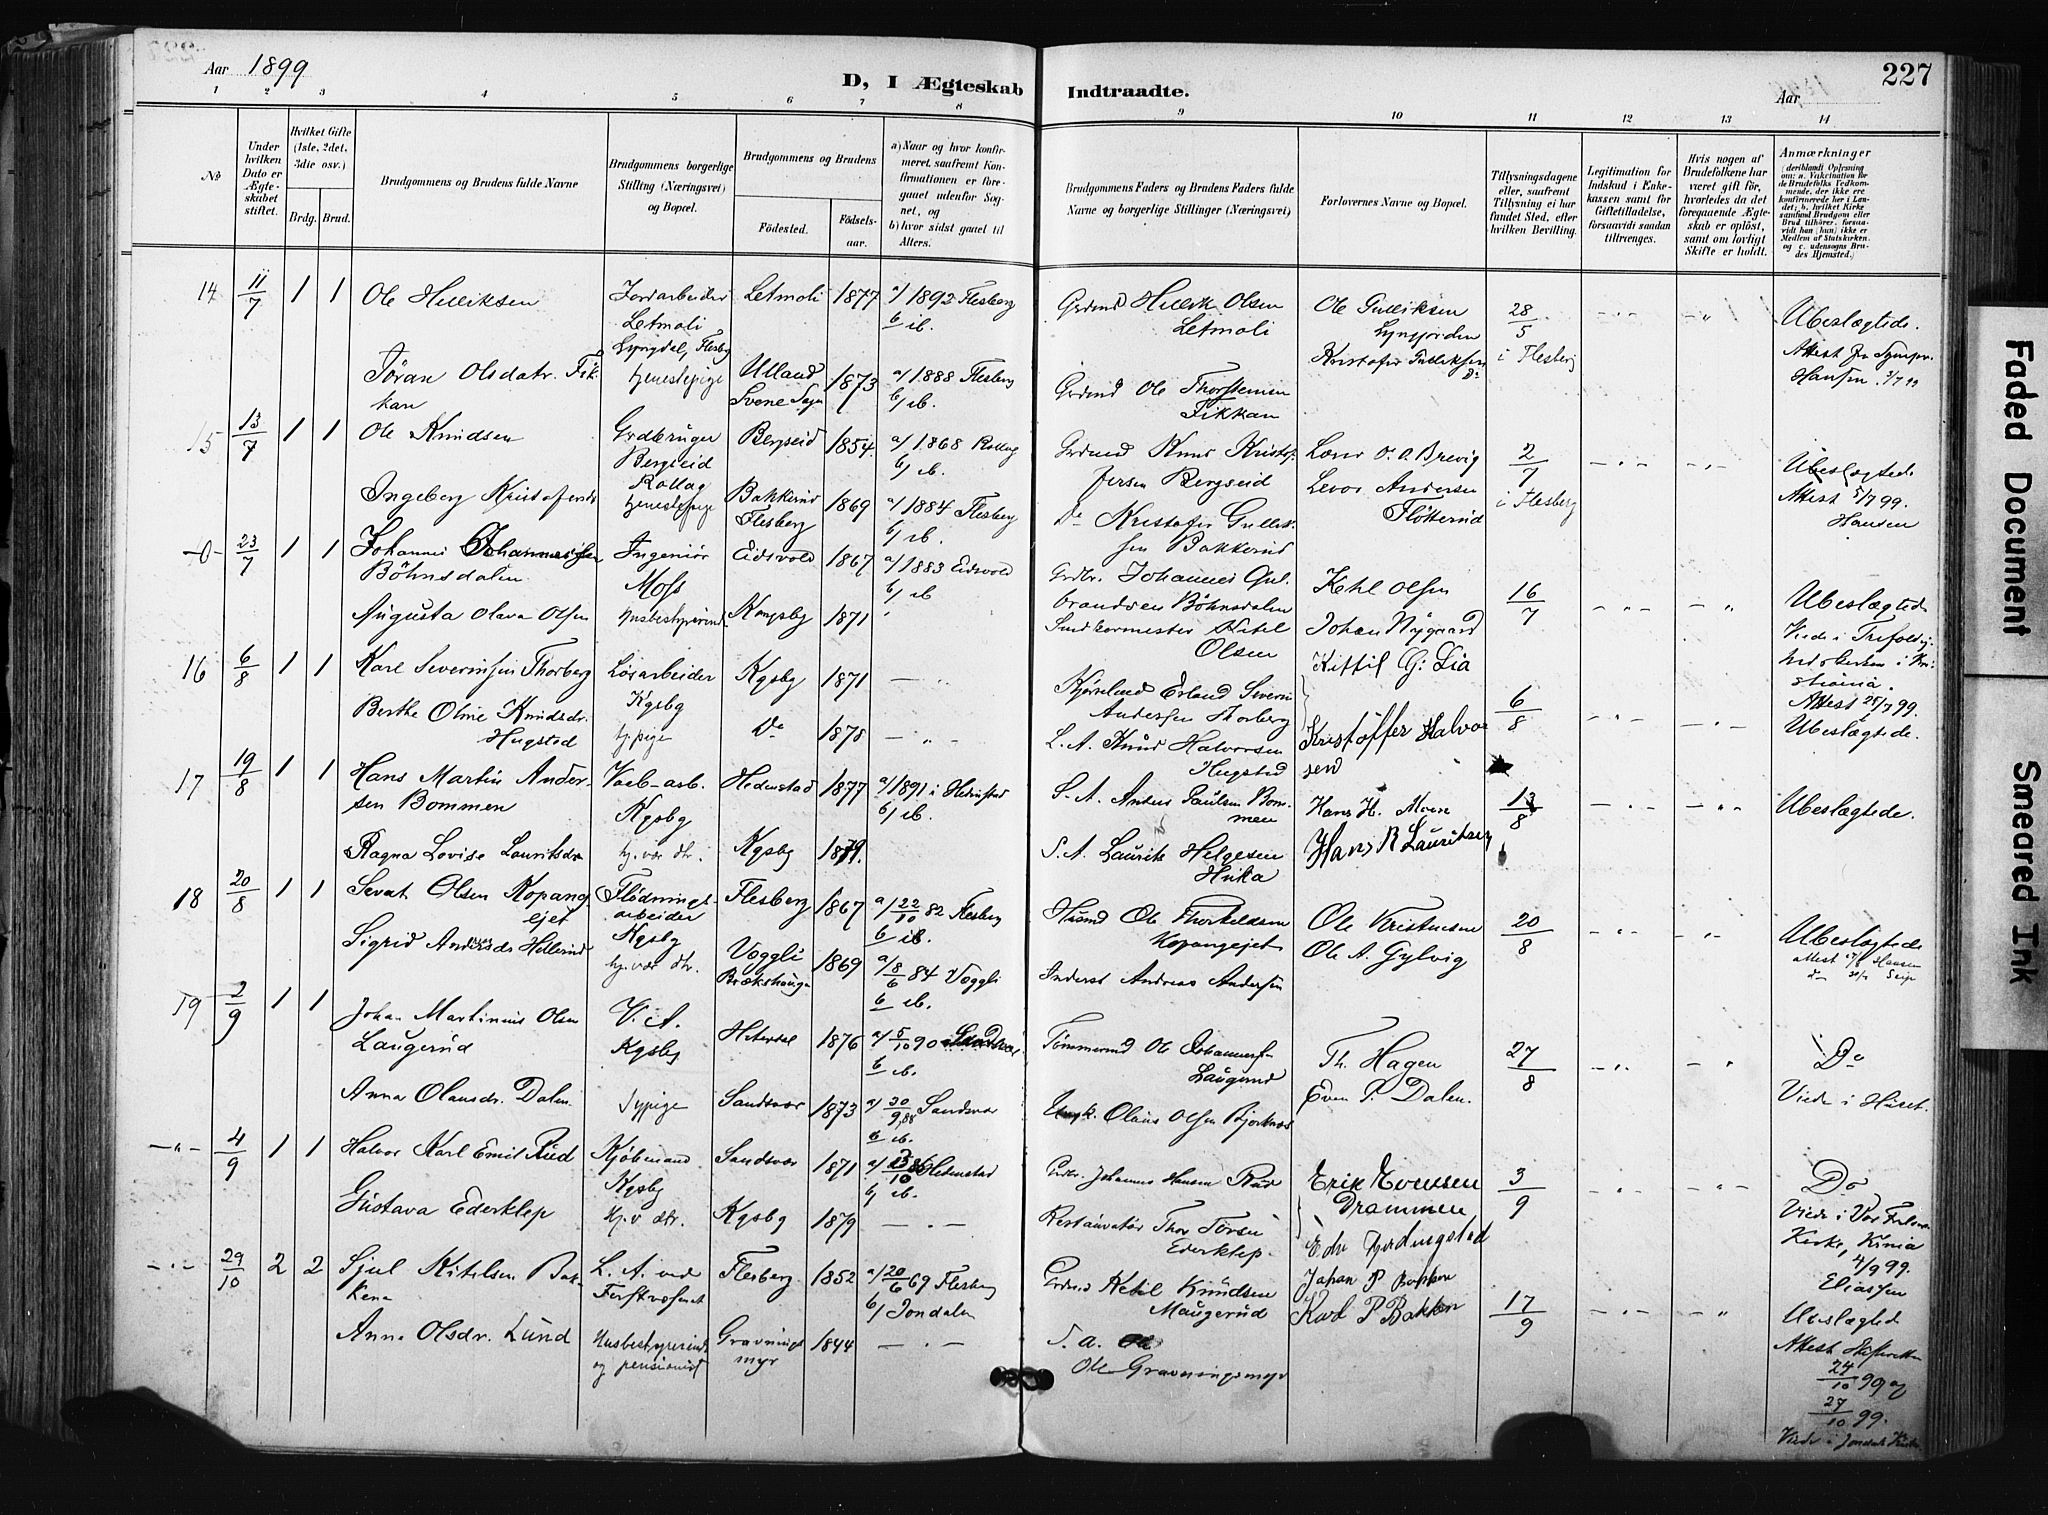 Aar 1899
D, I Ægteskab Indtraadte.
Aar
227
1 2 3 4 5 6 7 8 9 10 11 12 13 14
No
Under hvilken Dato er Ægteskabet stiftet.
Hvilket Gifte (1ste, 2det, 3die osv.)
Brdg. Brud.
Brudgommens og Brudens fulde Navne
Brudgommens borgerlige Stilling (Næringsvei) og Bopæl.
Brudgommens og Brudens
Fødested.
Fødsels-aar.
a) Naar og hvor konfirmeret, saafremt Konfirmationen er foregaaet udenfor Sognet, og
b) hvor sidst gaaet til Alters.
Brudgommens Faders og Brudens Faders fulde Navne og borgerlige Stillinger (Næringsvei)
Forlovernes Navne og Bopæl.
Tillysningsdagene eller, saafremt Tillysning ei har fundet Sted, efter hvilken Bevilling.
Legitimation for Indskud i Enkekassen samt for Giftetilladelse, forsaavidt saadan tiltrænges.
Hvis nogen af Brudefolkene har været gift før, hvorledes da det foregaaende Ægteskab er opløst, samt om lovligt Skifte er holdt.
Anmærkninger
(deriblandt Oplysning om: a. Vakcination for de Brudefolks Vedkommende, der ikke ere konfirmerede her i Landet; b. hvilket Kirkesamfund Brudgom eller Brud tilhører, forsaavidt han (hun) ikke er Medlem af Statskirken, og c. udensogns Brudes Hjemsted.)
14 11/7 1 1 Ole Helliksen
Jordarbeider Letmoli Lyngdal, Flesbg
Letmoli 1877 a/ 1892 Flesberg b/ ib.
Grdmd Hellik Olsen Letmoli
Ole Gulliksen
28/5 i Flesberg
Ubeslægtede.
Jøran Olsdatr. Fikkan
tjenestepige
Ulland Svene Sogn 1873 a/ 1888 Flesberg b/ ib.
Grdmd Ole Thorstensen Fikkan
Kristofer Gulliksen Do
Hansen 3/7 99
15 13/7 1 1 Ole Knudsen
Grdbruger Bergseid Rollag
Bergseid 1854. a/ 1868 Rollag b/ ib.
Grdmd Knud Kristofersen Bergseid
O. A. Brevig
2/7 i Flesberg
Ubeslægtede
Attest 5/7 99. Hansen
Ingeborg Kristofersdr
tjenestepige
Bakkerud Flesberg 1869 a/ 1884 Flesberg b/ ib.
Do Kristofer Gulliksen Bakkerud
Levor Andersen Flötterud
-0- 23/7 1 1 Johannes Johannessen Böhnsdalen
Ingeniör Moss
Eidsvold 1867 a/ 1883 Eidsvold b/ ib
Grdbr. Johannes Gulbrandsen Böhnsdalen
Ketil Olsen
16/7
Ubeslægtede
Viede i Trefoldighedskirken i Kristiania.
Attest 25/7 99.
Augusta Olava Olsen
Husbestyrerinde
Kongsbg 1871
Smidformester Ketil Olsen
Johan Nygaard
16 6/8 1 1 Karl Severinsen Thorberg
Lösarbeider Kgsbg
Kgsbg 1871
Erland Severin Andersen Thorberg
Kittil G: Lia
6/8
Ubeslægtede.
Berthe Oline Knudsdr. Hugstad
tj.pige
Do 1878
L. A. Knud Halvorsen Hugstad
Kristoffer Halvorsen
17 19/8 1 1 Hans Martin Andersen Bommen
Vaab-arb. Kgsbg
Hedenstad 1877 a/ 1891 i Hedenstad b/ ib.
S. A. Anders Paulsen Bommen
Hans H. Moen
13/8
Ubeslægtede.
Ragna Lovise Lauritsdr
hj. vær. dtr.
Kgsbg 1879.
S. A. Laurits Helgesen
Hans R Lauritsen
18 20/8 1 1 Sevat Olsen Kopangejet
Flödningsarbeider Kgsbg
Flesberg 1867 a/ 22/10 82 Flesberg b ib.
Husmd Ole Thorkeldsen Kopangejet
Ole Kristensen
20/8
Ubeslægtede
Attest Hansen
Sigrid Andersdr Hellerud
hj. vær. dtr.
Voggli 1869 a/ 8/6 84 Voggli b ib.
Inderst Andreas Andersen
Ole A. Gylvig
19 2/9 1 1 Johan Martinius Olsen Laugerud
V. A. Kgsbg
Hiterdal 1876 a/ 5/10 90 b ib.
Tömmermd Ole Johannesen Laugerud
Th. Hagen
27/8
Do
Viede i Huset.
Anna Olausdr. Dalen
Sypige
Sandsvær 1873 a/ 30/9 88 Sandsvær b ib.
Olaus Olsen Bjerknes
Even P. Dalen.
-"- 4/9 1 1 Halvor Karl Emil Rud
Kjöbmand Kgsbg
Sandsvær 1871 a/ /10 86 Hedenstad b/ ib.
Grdbr. Johannes Hansen Rud
Erik Evensen Drammen
3/9
Do
Viede i Vor Frelsers Kirke, Kr.nia 4/9 99.
Eliassen
Gustava Ederklep
Hj. v. dtr.
Kgsbg 1879
Restauratör Thor Torsen Ederklep.
-"- 29/10 2 2 Sjul Kitelsen Bakkene
L. A. ved Forstvæsenet
Flesberg 1852 a/ 20/6 69 Flesberg b/ Jondalen
Grdmd Ketil Knudsen Maugerud
Johan P Bakken
17/9
Ubeslægted
Attest Skifteretten 24/10 99 og 27/10 99.
Viede i Jondals Kirke.
Anna Olsdr. Lund
Husbestyrerinde og pensionist
Gravningsmyr 1844
S. a. Ole Gravningsmyr
Karl P Bakken
Faded Document
Smeared Ink